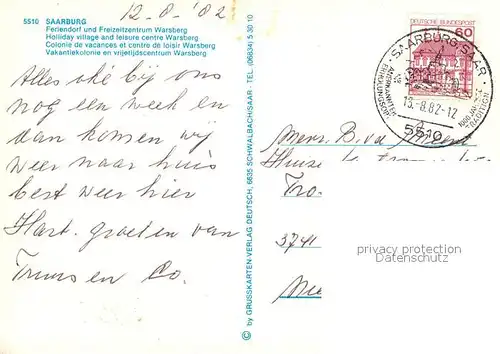 12-8-'82
5510 SAARBURG
Feriendorf und Freizeitzentrum Warsberg
Holliday village and leisure centre Warsberg
Colonie de vacances et centre de loisir Warsberg
Vakantiekolonie en vrijetijdscentrum Warsberg
Alles oké bij ons
nog een week en
dan komen wij
weer naar huis
best weer hier
Hart. groeten van
Truus en Co.
© by GRUSSKARTEN-VERLAG DEUTSCH, 6635 SCHWALBACH/SAAR - TEL. (06834) 5 30 10
DEUTSCHE BUNDESPOST
60
SAARBURG, SAAR
ANERKANNTER
ERHOLUNGSORT
13.-8.82-12
5510
Mevr. B. v.d.
Huize
3741
privacy protection
Datenschutz